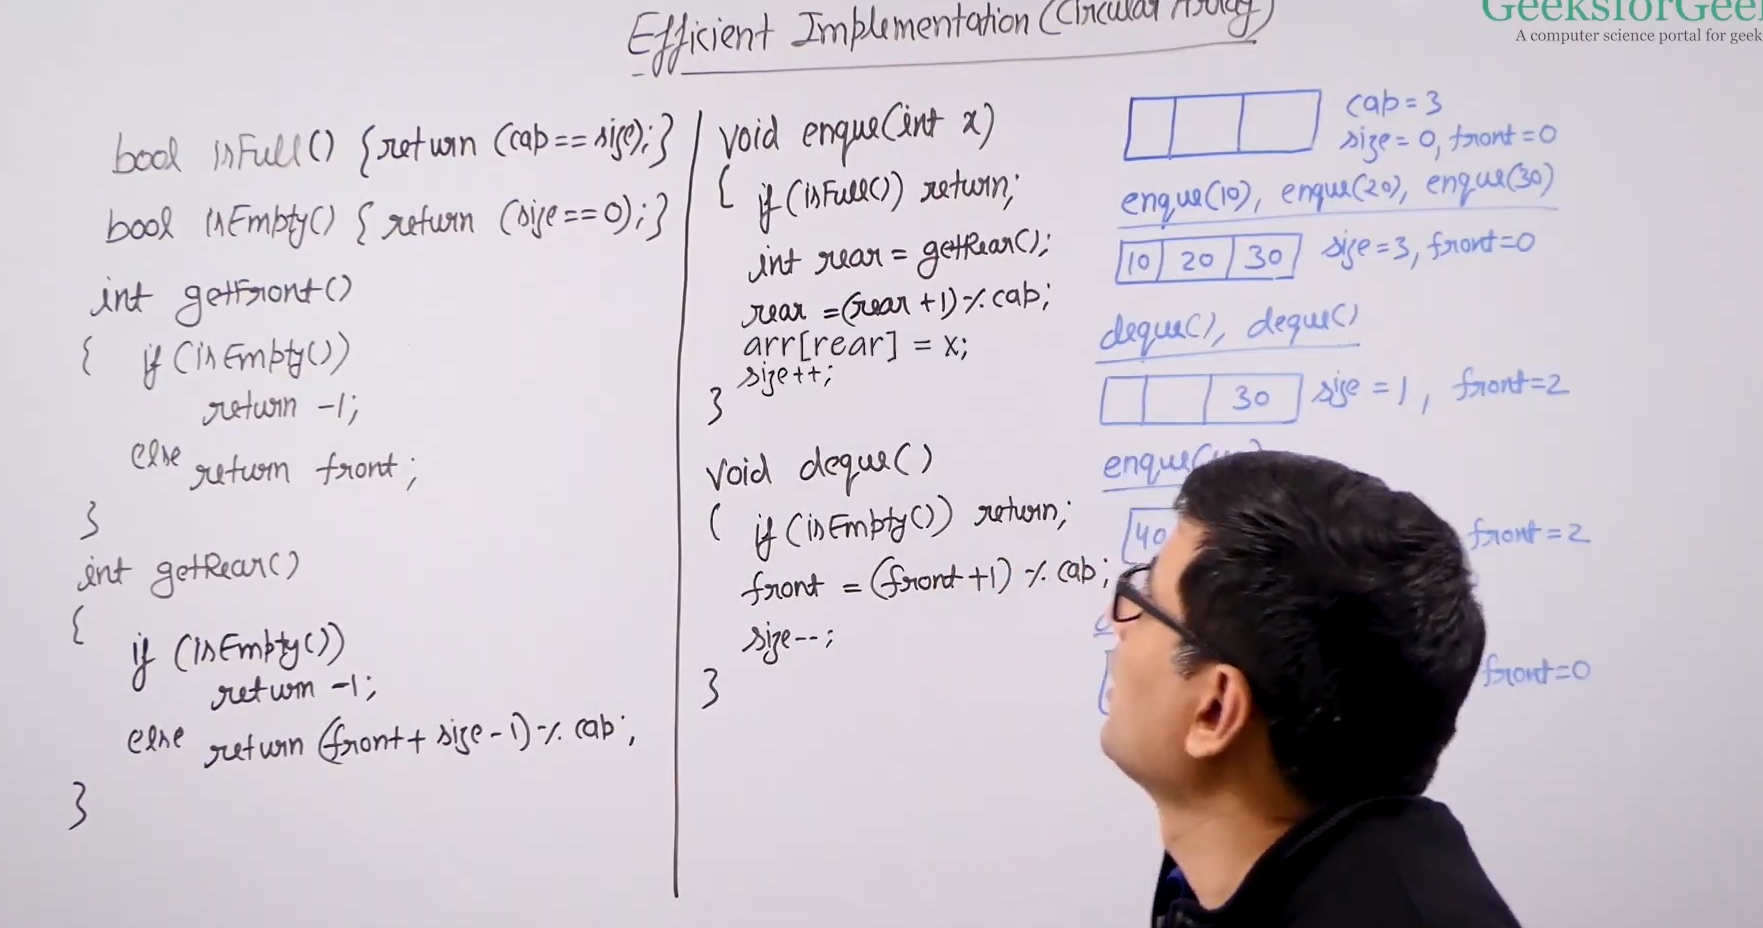 Efficient Implementation (Circular Array)
GeeksforGee
A computer science portal for geek
bool isFull() {return (cap==size);}
bool isEmpty() { return (size==0);}
int getFront()
{ if (isEmpty())
return -1;
else return front;
}
int getRear()
{
if (isEmpty())
return -1;
else return (front + size - 1) % cap;
}
void enque(int x)
{ if (isFull()) return;
int rear = getRear();
rear = (rear + 1) % cap;
arr[rear] = x;
size++;
}
void deque()
( if (isEmpty()) return;
front = (front+1) % cap;
size--;
}
cap = 3
size = 0, front = 0
enque(10), enque(20), enque(30)
10 20 30 size = 3, front = 0
deque(), deque()
30 size = 1, front = 2
enque(
40 front = 2
front = 0